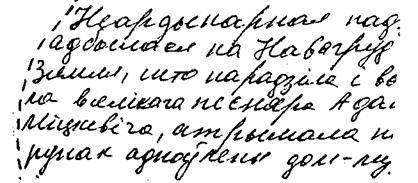 Неардынарная пад
адбылася на Навагруд
Зямля, што нарадзіла і вы
ла вялікага песняра Ада
Міцкевіча, атрымала п
рунак адноўлены дом-му